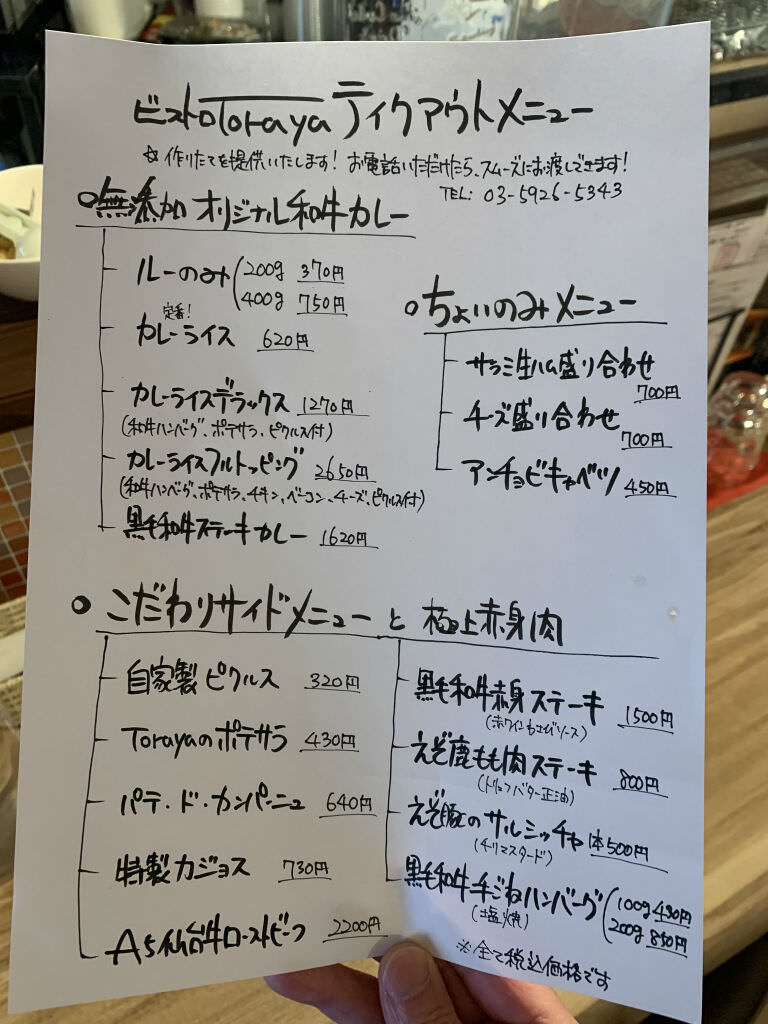 ビストロToraya テイクアウトメニュー
☆作りたてを提供いたします！お電話いただけたら、スムーズにお渡しできます！
TEL: 03-5926-5343
無添加 オリジナル和牛カレー
ルーのみ 200g 370円
400g 750円
定番！
カレーライス 620円
カレーライスデラックス 1270円
(和牛ハンバーグ、ポテサラ、ピクルス付)
カレーライスフルトッピング 2650円
(和牛ハンバーグ、ポテサラ、チキン、ベーコン、チーズ、ピクルス付)
黒毛和牛ステーキカレー 1620円
ちょいのみメニュー
サラミ生ハム盛り合わせ
700円
チーズ盛り合わせ
700円
アンチョビキャベツ 450円
こだわりサイドメニューと 極上赤身肉
自家製ピクルス 320円
Torayaのポテサラ 430円
パテ・ド・カンパーニュ 640円
特製カジョス 730円
A5仙台牛ローストビーフ 2200円
黒毛和牛赤身ステーキ 1500円
(赤ワインわさびソース)
えぞ鹿もも肉ステーキ 800円
(トリュフバター正油)
えぞ豚のサルシッチャ 1本500円
(チリマスタード)
黒毛和牛手ごねハンバーグ 100g 490円
(塩焼) 200g 850円
※全て税込価格です